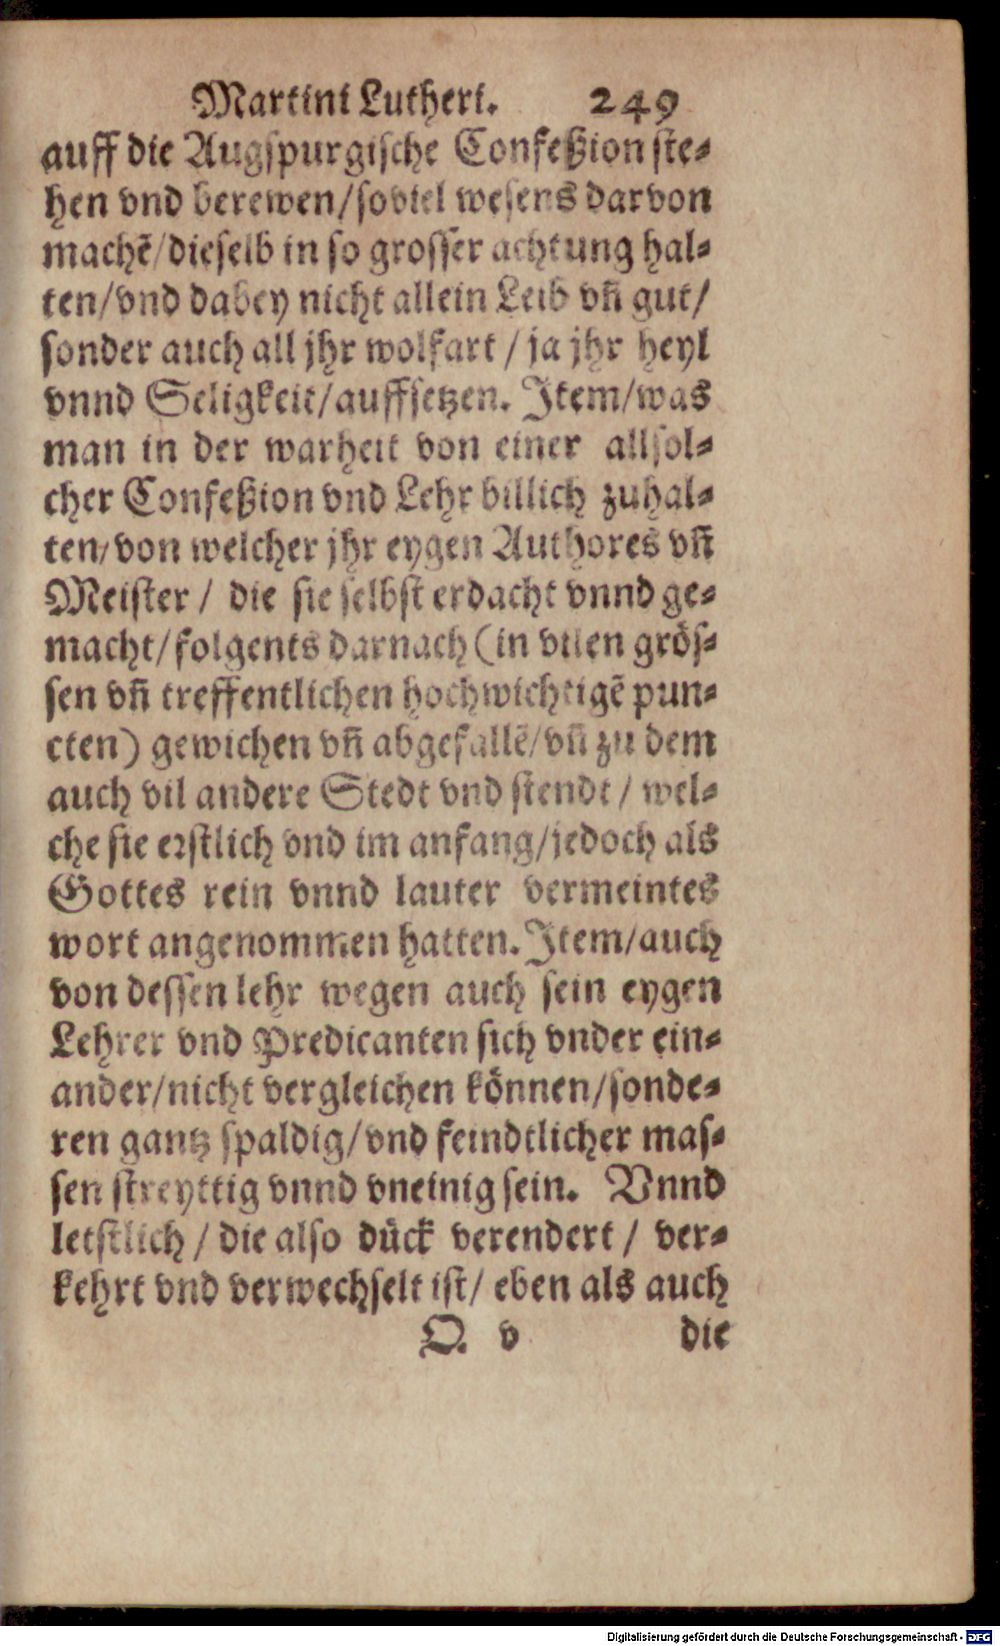 Martini Lutheri. 249
auff die Augspurgische Confeßion ste-
hen vnd berewen/soviel wesens darvon
machẽ/dieselb in so grosser achtung hal-
ten/vnd dabey nicht allein Leib vñ gut/
sonder auch all jhr wolfart / ja jhr heyl
vnnd Seligkeit/auffsetzen. Item/was
man in der warheit von einer allsol-
cher Confeßion vnd Lehr billich zuhal-
ten/von welcher jhr eygen Authores vñ
Meister / die sie selbst erdacht vnnd ge-
macht/folgents darnach (in vilen grös-
sen vñ treffentlichen hochwichtigẽ pun-
cten) gewichen vñ abgefallẽ/vñ zu dem
auch vil andere Stedt vnd stendt / wel-
che sie erstlich vnd im anfang/jedoch als
Gottes rein vnnd lauter vermeintes
wort angenommen hatten. Item/auch
von dessen lehr wegen auch sein eygen
Lehrer vnd Predicanten sich vnder ein-
ander/nicht vergleichen können/sonde-
ren gantz spaldig/vnd feindtlicher mas-
sen streyttig vnnd vneinig sein. Vnnd
letstlich / die also dück verendert / ver-
kehrt vnd verwechselt ist/ eben als auch
Q. v die
Digitalisierung gefördert durch die Deutsche Forschungsgemeinschaft - DFG